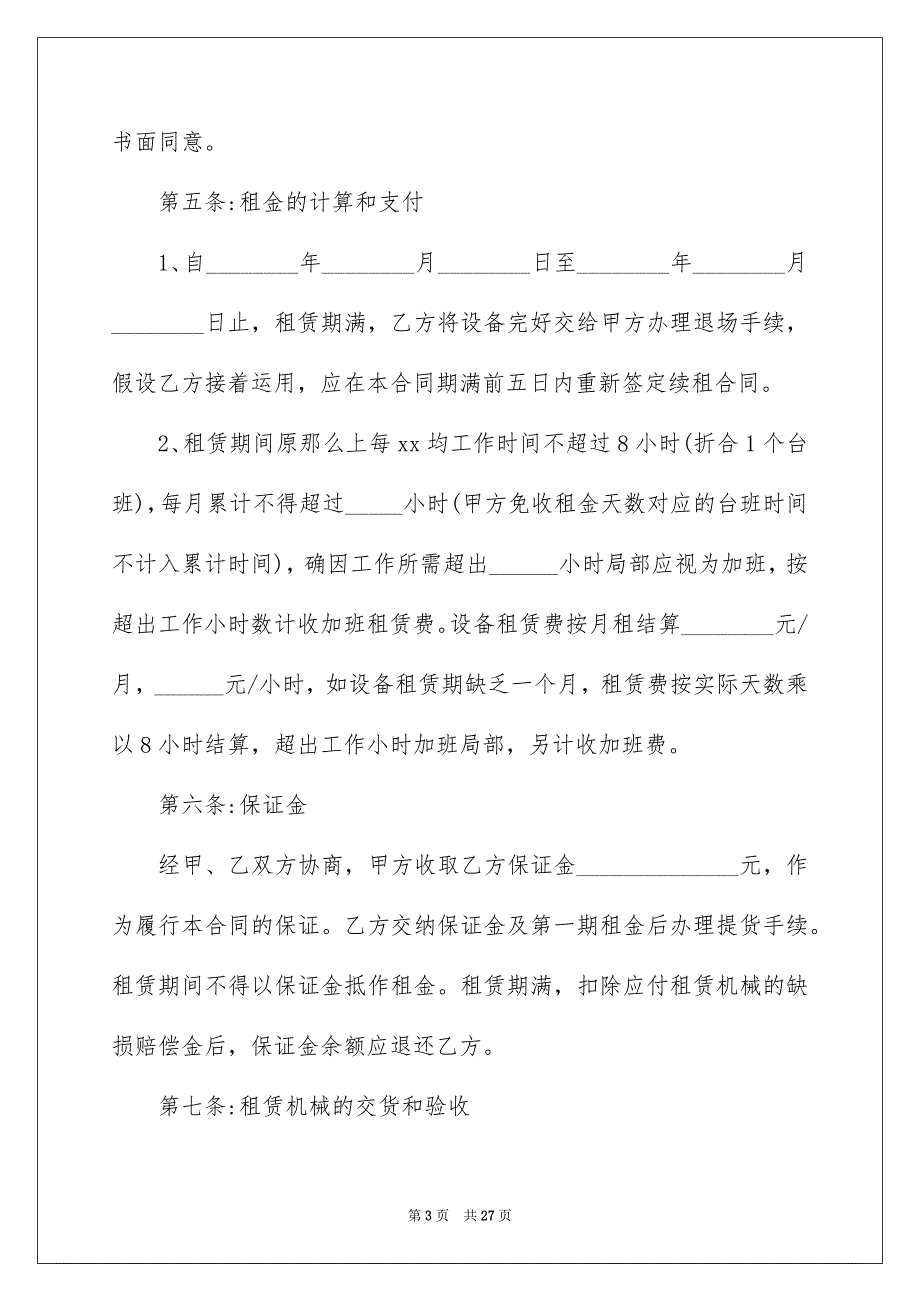 书面同意。
第五条:租金的计算和支付
1、自________年________月________日至________年________月
________日止，租赁期满，乙方将设备完好交给甲方办理退场手续，
假设乙方接着运用，应在本合同期满前五日内重新签定续租合同。
2、租赁期间原那么上每 xx 均工作时间不超过 8 小时(折合 1 个台
班)，每月累计不得超过_____小时(甲方免收租金天数对应的台班时间
不计入累计时间)，确因工作所需超出______小时局部应视为加班，按
超出工作小时数计收加班租赁费。设备租赁费按月租结算________元/
月，______元/小时，如设备租赁期缺乏一个月，租赁费按实际天数乘
以 8 小时结算，超出工作小时加班局部，另计收加班费。
第六条:保证金
经甲、乙双方协商，甲方收取乙方保证金______________元，作
为履行本合同的保证。乙方交纳保证金及第一期租金后办理提货手续。
租赁期间不得以保证金抵作租金。租赁期满，扣除应付租赁机械的缺
损赔偿金后，保证金余额应退还乙方。
第七条:租赁机械的交货和验收
第 3 页 共 27 页